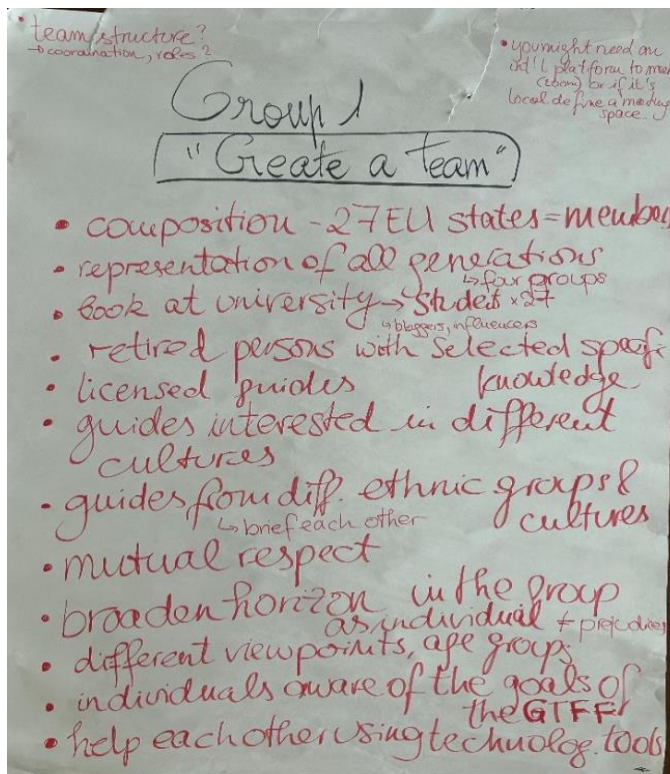 • team structure?
→ coordination, roles?
• you might need an
int'l platform to meet
(zoom) or if it's
local define a meeting
space.
Group 1
"Create a team"
• composition - 27 EU states = members
• representation of all generations
↳ four groups
• Look at university → student × 27
↳ bloggers, influencers
• retired persons with selected specific
knowledge
• licensed guides
• guides interested in different
cultures
• guides from diff. ethnic groups &
cultures
↳ brief each other
• mutual respect
• broaden horizon in the group
as individual + prejudices
• different viewpoints, age groups
• individuals aware of the goals of
the GTFF
• help each other using technolog. tools